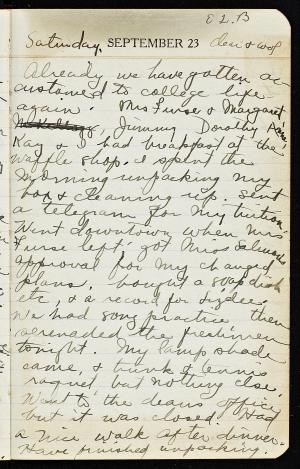 Saturday, SEPTEMBER 23 clear & cool
Already we have gotten ac-
customed to college life
again. Mrs Furse & Margaret
, Jimmy Dorothy Jane,
Kay & I had breakfast at the
waffle shop. I spent the
morning unpacking my
box & cleaning up. Sent
a telegram for my tuition.
Went downtown when Mrs
Furse left; got Miss
approval for my changed
plans, bought a soap dish
etc, & a record for
We had song practice then
serenaded the freshmen
tonight. My lamp shade
came, & trunk & tennis
raquet but nothing else.
Went to the deans office
but it was closed. Had
a nice walk after dinner.
Have finished unpacking.